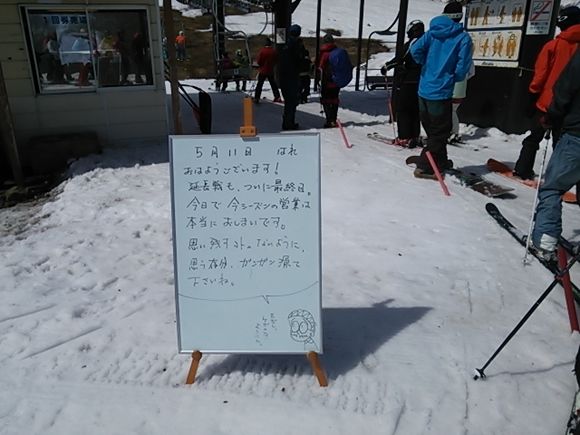 1回券売場
5月11日 はれ
おはようございます!
延長戦も、ついに最終日。
今日で今シーズンの営業は
本当におしまいです。
思い残すコト。ないように、
思う存分、ガンガン滑って
下さいね。